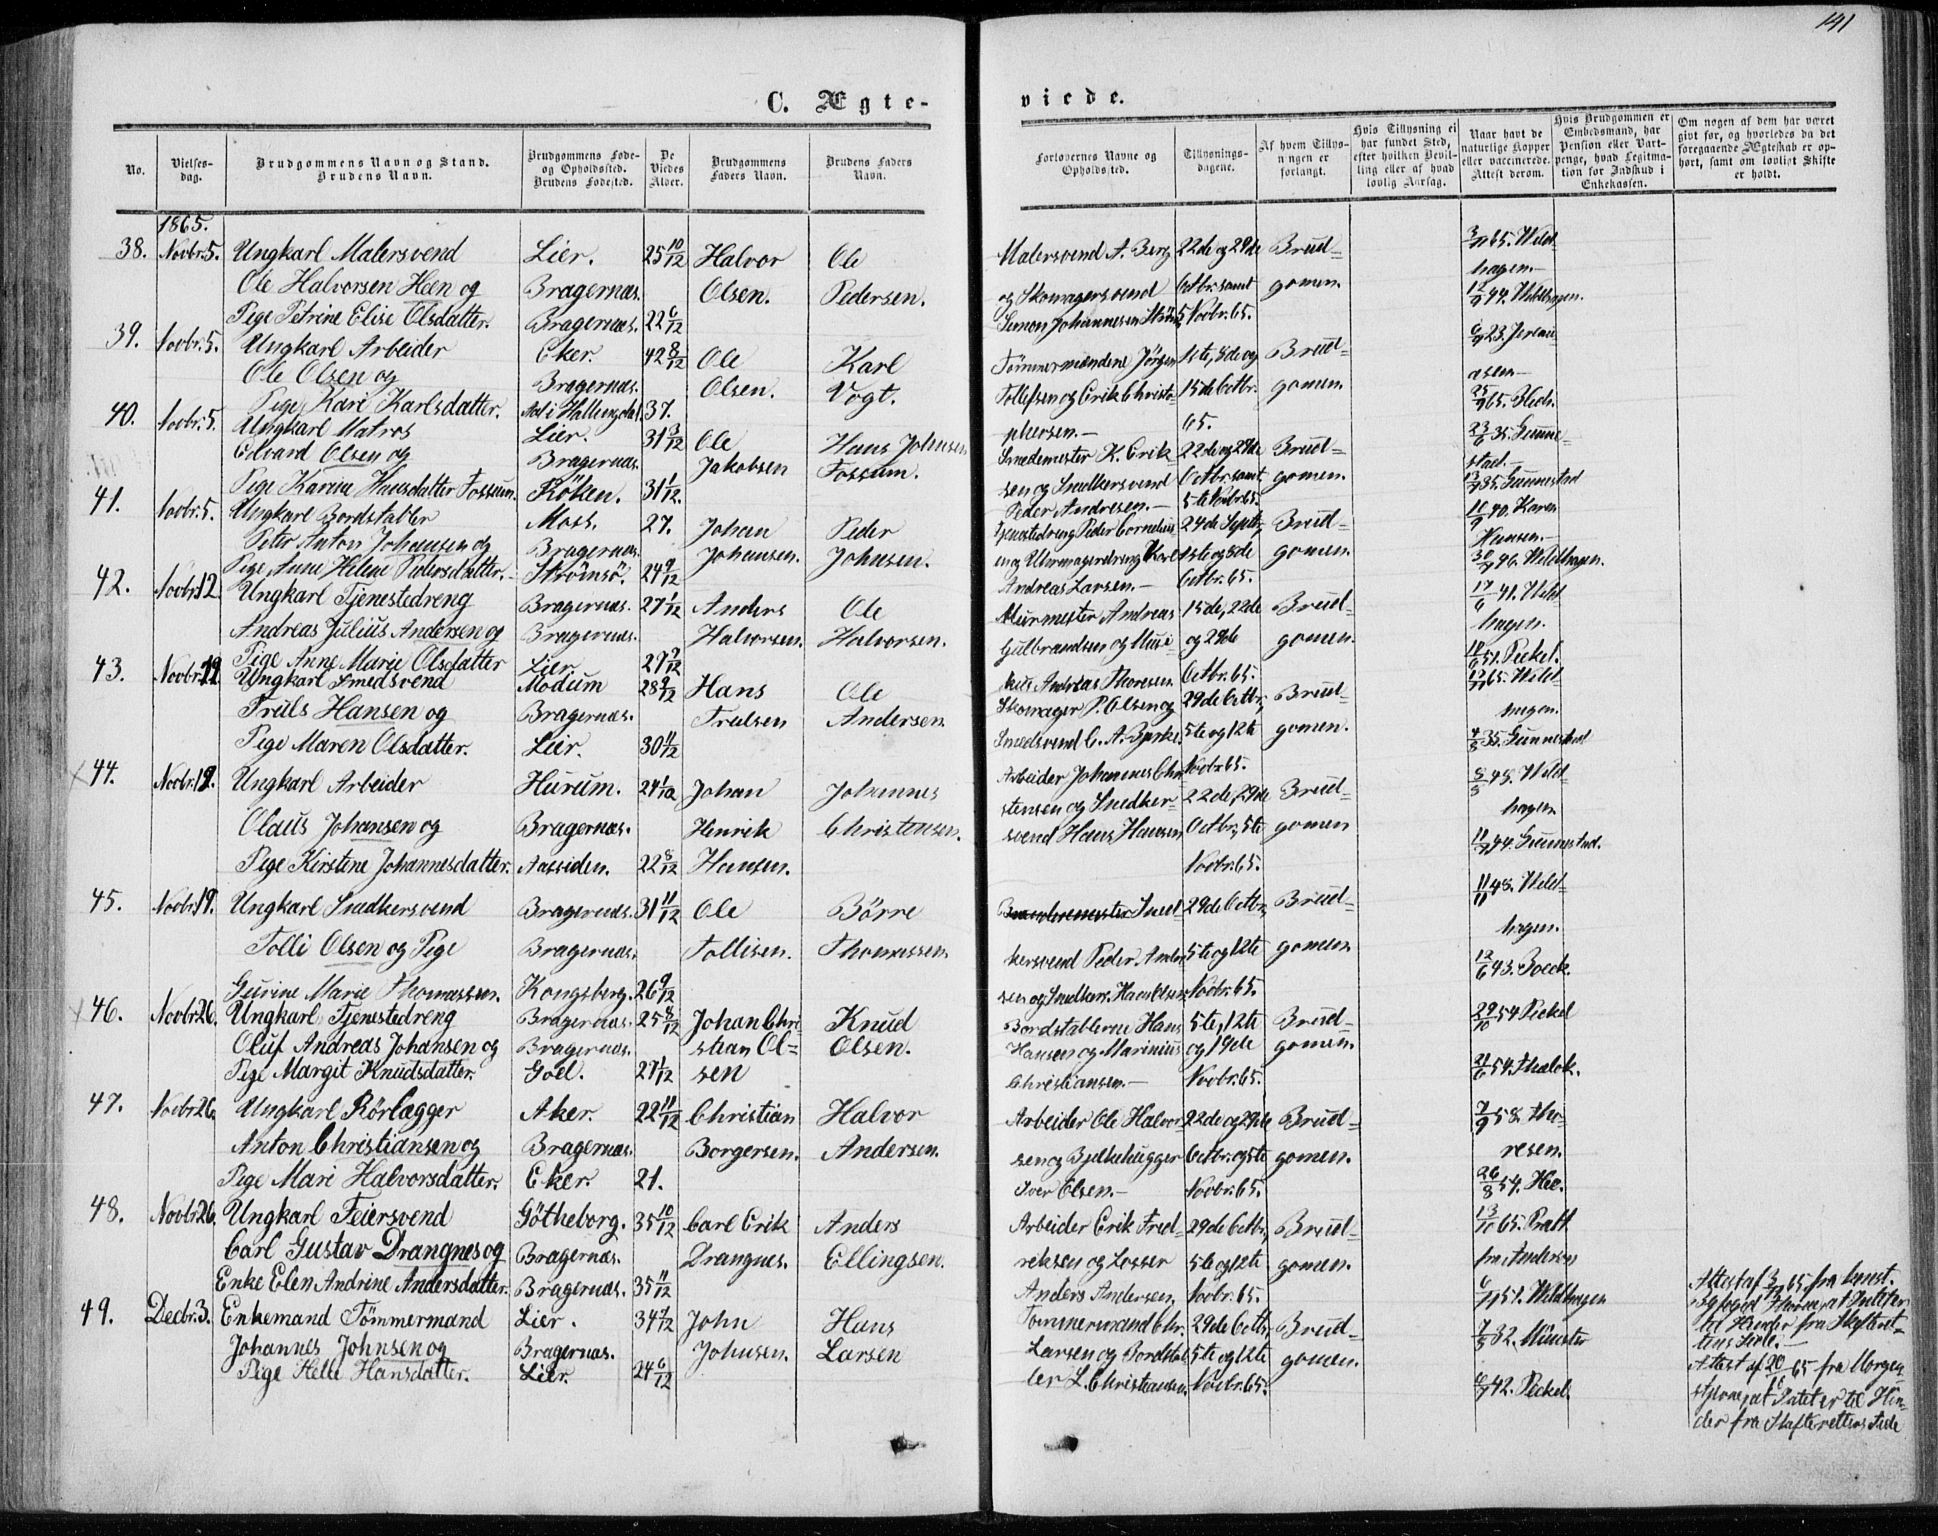 141
C. Ægte-
viede.
No.
Vielses-
dag.
Brudgommens Navn og Stand.
Brudens Navn.
Brudgommens Føde-
og Opholdssted.
Brudens Fødested.
De
Viedes
Alder.
Brudgommens
Faders Navn.
Brudens Faders
Navn.
Forlovernes Navne og
Opholdssted.
Tillysnings-
dagene.
Af hvem Tillys-
ningen er
forlangt.
Hvis Tillysning ei
har fundet Sted,
efter hvilken Bevil-
ling eller af hvad
lovlig Aarsag.
Naar havt de
naturlige Kopper
eller vaccinerede.
Attest derom.
Hvis Brudgommen er
Embedsmand, har
Pension eller Vart-
penge, hvad Legitma-
tion for Indskud i
Enkekassen.
Om nogen af dem har været
gift før, og hvorledes da det
foregaaende Ægteskab er op-
hørt, samt om lovligt Skifte
er holdt.
1865.
38. Novbr. 5. Ungkarl Malersvend Lier. 25 10/12 Halvor Ole
Ole Halvorsen Heen og Bragernæs. Olsen. Pedersen.
Pige Petrine Elise Olsdatter. Bragernæs. 22 6/12
Malersvend A. Berg 22de og 29de Brud-
og Skomagersvend Octbr. samt gomen.
Simon Johannesen 5 Novbr. 65.
39. Novbr. 5. Ungkarl Arbeider Eker. 42 8/12 Ole Karl
Ole Olsen og Bragernæs. Olsen. Vogt.
Pige Kari Karlsdatter. Aal i Hallingdal. 37.
Tømmermændene Jörgen 1ste, 8de og Brud-
Tollefsen og Erik Christo- 15de Octbr. gomen.
phersen.- 65.
40. Novbr. 5. Ungkarl Matros Lier. 31 3/12 Ole Hans Johnsen
Edvard Olsen og Bragernæs. Jakobsen Fossum.
Pige Karen Hansdatter Fossum. Röken. 31 1/12.
Smedemester K. Erik- 22de og 29de Brud-
sen og Snedkersvend Octbr. samt gomen.
Peder Andresen.- 5te Novbr. 65.
41. Novbr. 5. Ungkarl Bordstabler Moss. 27. Johan Peder
Peter Anton Johansen og Bragernæs. Johansen. Johnsen.
Pige Anne Helene Pedersdatter. Strømsö. 24 9/12
Tjenestedreng Peder Cornelius 24de Septbr, Brud-
en og Uhrmagerdreng Karl 1ste og 8de gomen.
Andreas Larsen.- Octbr. 65.
42. Novbr. 12. Ungkarl Tjenestedreng Bragernæs. 27 1/12 Anders Ole
Andreas Julius Andersen og Bragernæs. Halvorsen. Halvorsen.
Pige Anne Marie Olsdatter Lier.
Murmester Andreas 15de, 22de Brud-
Gulbrandsen og Mus- og 29de gomen.
Andreas Thoresen. Octbr. 65.
43. Novbr. 19. Ungkarl Smedsvend Modum 28 9/12 Hans Ole
Truls Hansen og Bragernæs. Trulsen Andersen
Pige Maren Olsdatter. Lier. 30 11/12
Skomager P. Olsen og 29de Octbr, Brud-
Smedsvend C. A. 5te og 12te gomen.
Novbr. 65.
44. Novbr. 19. Ungkarl Arbeider Hurum. 24 1/12 Johan Johannes
Olaus Johansen og Bragernæs. Henrik Christensen.
Pige Kirstine Johannesdatter. Aassiden. 22 8/12 Hansen.
Arbeider Johannes Chri-
stensen og Snedker- 22de, 29de Brud-
svend Hans Hansen Octbr, 5te gomen
Novbr. 65.
45. Novbr. 19. Ungkarl Snedkersvend Bragernæs. 31 11/12 Ole Börre
Tolli Olsen og Pige Bragernæs. Tollisen. Thomassen
Gurine Marie Thomassen. Kongsberg. 26 9/12
Sned- 29de Octbr, Brud-
kersvend Peder Ander- 5te og 12te gomen
sen og Snedker. Hans Olsen. Novbr. 65.
46. Novbr. 26. Ungkarl Tjenestedreng Bragernæs. 25 8/12 Johan Chri- Knud
Oluf Andreas Johansen og Bragernæs. stian Ol- Olsen.
Pige Margit Knudsdatter. Goel. 27 1/12 sen
Bordstablerne Hans 5te, 12te Brud-
Hansen og Marinius og 19de gomen.
Christiansen.- Novbr. 65.
47. Novbr. 26. Ungkarl Rörlægger Aker. 22 11/12 Christian Halvor
Anton Christiansen og Bragernæs. Borgersen. Andersen.
Pige Mari Halvorsdatter. Eker. 21.
Arbeider Ole Halvor- 22de og 29de Brud-
sen og Bjelkehugger Octbr. og 5te gomen.
Iver Olsen.- Novbr. 65.
48. Novbr. 26. Ungkarl Feiersvend Götheborg. 35 10/12 Carl Erik Anders
Carl Gustav Drangnes og Bragernæs. Drangnes. Ellingsen.
Enke Elen Andrine Andersdatter. Bragernæs. 35 11/12
Arbeider Erik Fred- 29de Octbr, Brud-
riksen og Losser 5te og 12te gomen.
Anders Andersen. Novbr. 65.
49. Decbr. 3. Enkemand Tömmermand Lier. 34 7/12 John Hans
Johannes Johnsen og Bragernæs. Johnsen. Larsen
Pige Helle Hansdatter. Lier. 24 6/12
Tømmermand Chr. 29de Octbr, Brud-
Larsen og Bordstab- 5te og 12te gomen.
ler L. Christiansen. Novbr. 65.
3/11 65. Wild-
hagen.-
12/9 44. Wildhagen.
6/9 23.
25/9 65.
23/6 35. Gunne-
stad.-
13/9 35. Gunnestad
11/9 40. Karen
Hansen.-
30/9 46. Wildhagen.
17/6 41. Wild
hagen.
18/6 51. Peckel.
65. Wild-
hagen.
4/8 35. Gunnestad
8/8 48. Wild-
hagen
11/9 44. Gunnestad.
11/11 48. Wild-
hagen.
12/6 43. Boeck.
29/10 54 Peckel
54.
7/9 58. Tho-
resen.
26/8 54.
13/10 65. Pratt
fra Andersen
6/11 51. Wildhagen
7/8 32. Münster
6/9 42. Peckel
Attest af 3/11 65 fra
at Intet er
til Hinder fra Skifteret-
tens Side.-
Attest af 20/10 65 fra Morgen-
stjerne, at Intet er til Hin-
der fra Skifterettens Side